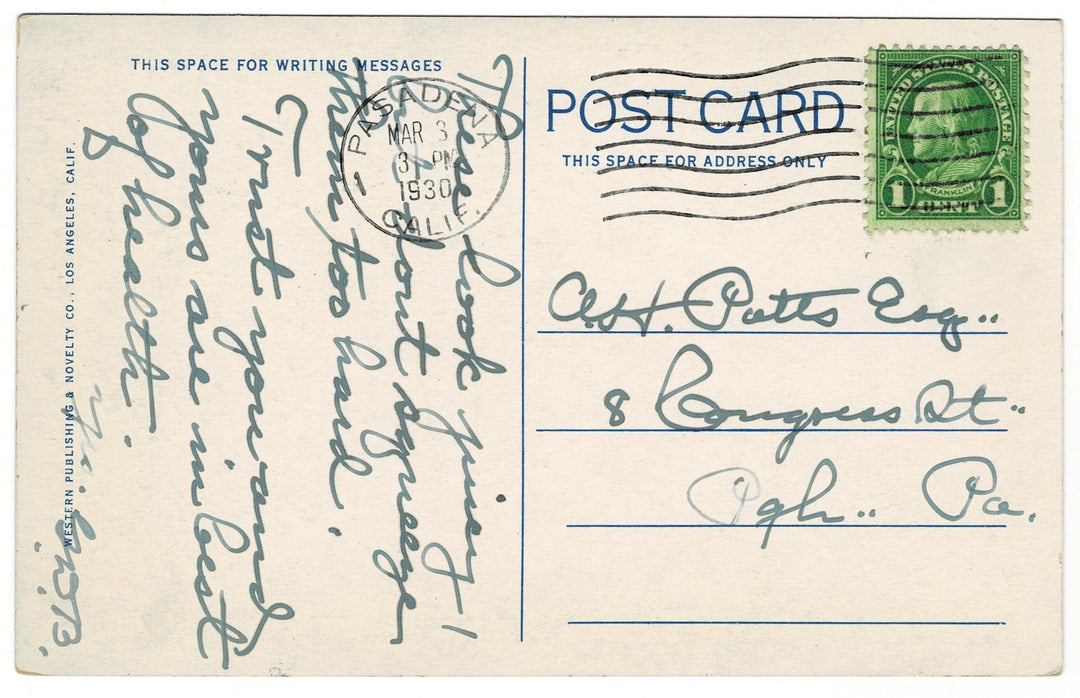 THIS SPACE FOR WRITING MESSAGES
These look juicy!
dont squeeze
them too hard.
I trust you and
yours are in best
of health.
WESTERN PUBLISHING & NOVELTY CO., LOS ANGELES, CALIF.
PASADENA
MAR 3
3 PM
1930
CALIF.
1
POST CARD
THIS SPACE FOR ADDRESS ONLY
UNITED STATES POSTAGE
FRANKLIN
1 CENT 1
A.H. Potts Esq..
8 Congress St..
Pgh.. Pa.